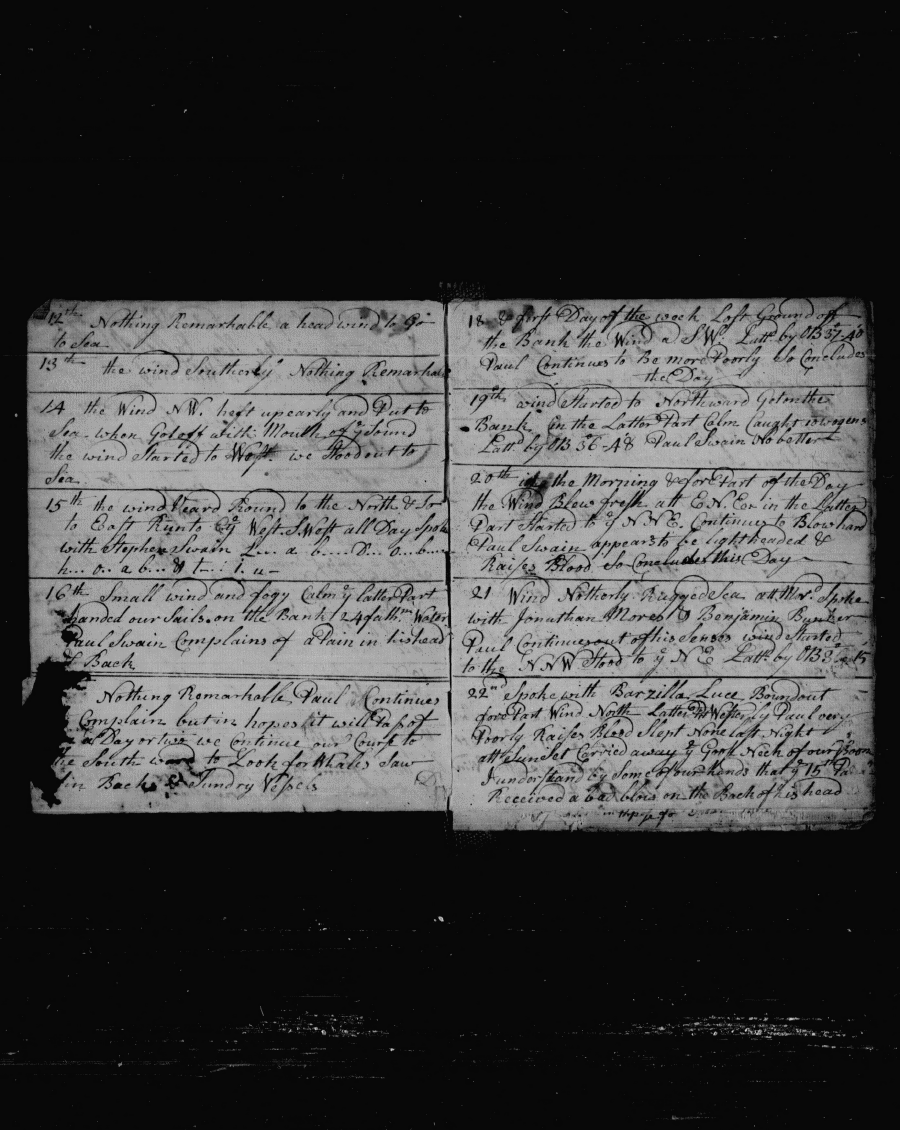 12th Nothing Remarkable a head wind to Go
to Sea
13th the wind Southerly Nothing Remarkab
14 the Wind NW. heft up early and Put to
Sea when Got off with Mouth of ye Sound
the wind Started to West. we Stood out to
Sea
15th the wind Veard Round to the North & So
to East Run to ye West S. West all Day Spoke
with Stephen Swain L... a b.... D... o... b....
h... o.. a b... & t... i. u-
16th Small wind and fogy Calm ye latter Part
handed our Sails on the Bank 24 fathm Water
Paul Swain Complains of a Pain in his head
& Back
Nothing Remarkable Paul Continues
Complain but in hopes it will Pas of
a Day or two we Continue our Course to
the South ward to Look for Whales Saw
fin Backs & Sundry Vessels
18 & first Day of the week Lost Ground off
the Bank the Wind a SW. Lattd by OB 37-40
Paul Continues to Be more Poorly So Concludes
the Day
19th wind Started to Northward Got in the
Bank in the Latter Part Calm Caught
Lattd by OB 36-48 Paul Swain No better
20th the Morning & fore Part of the Day
the Wind Blew fresh att E.N.E. in the Latter
Part Started to ye N N E. Continues to Blow hard
Paul Swain appears to be light headed &
Raises Blood So Concludes this Day
21 Wind Notherly Rugged Sea at Spoke
with Jonathan Mores & Benjamin Bunker
Paul Continues out of his Senses wind Started
to the NNW Stood to ye N E Lattd by OB 15
22nd Spoke with Barzilla Luce Bound out
fore Part Wind North Latter Westerly Paul very
Poorly Raises Blood Slept None last Night
att Sun Set Carried away ye Goos Neck of our Boom
I understand by Some of our hands that ye 15th
Received a bad blow on the Back of his head